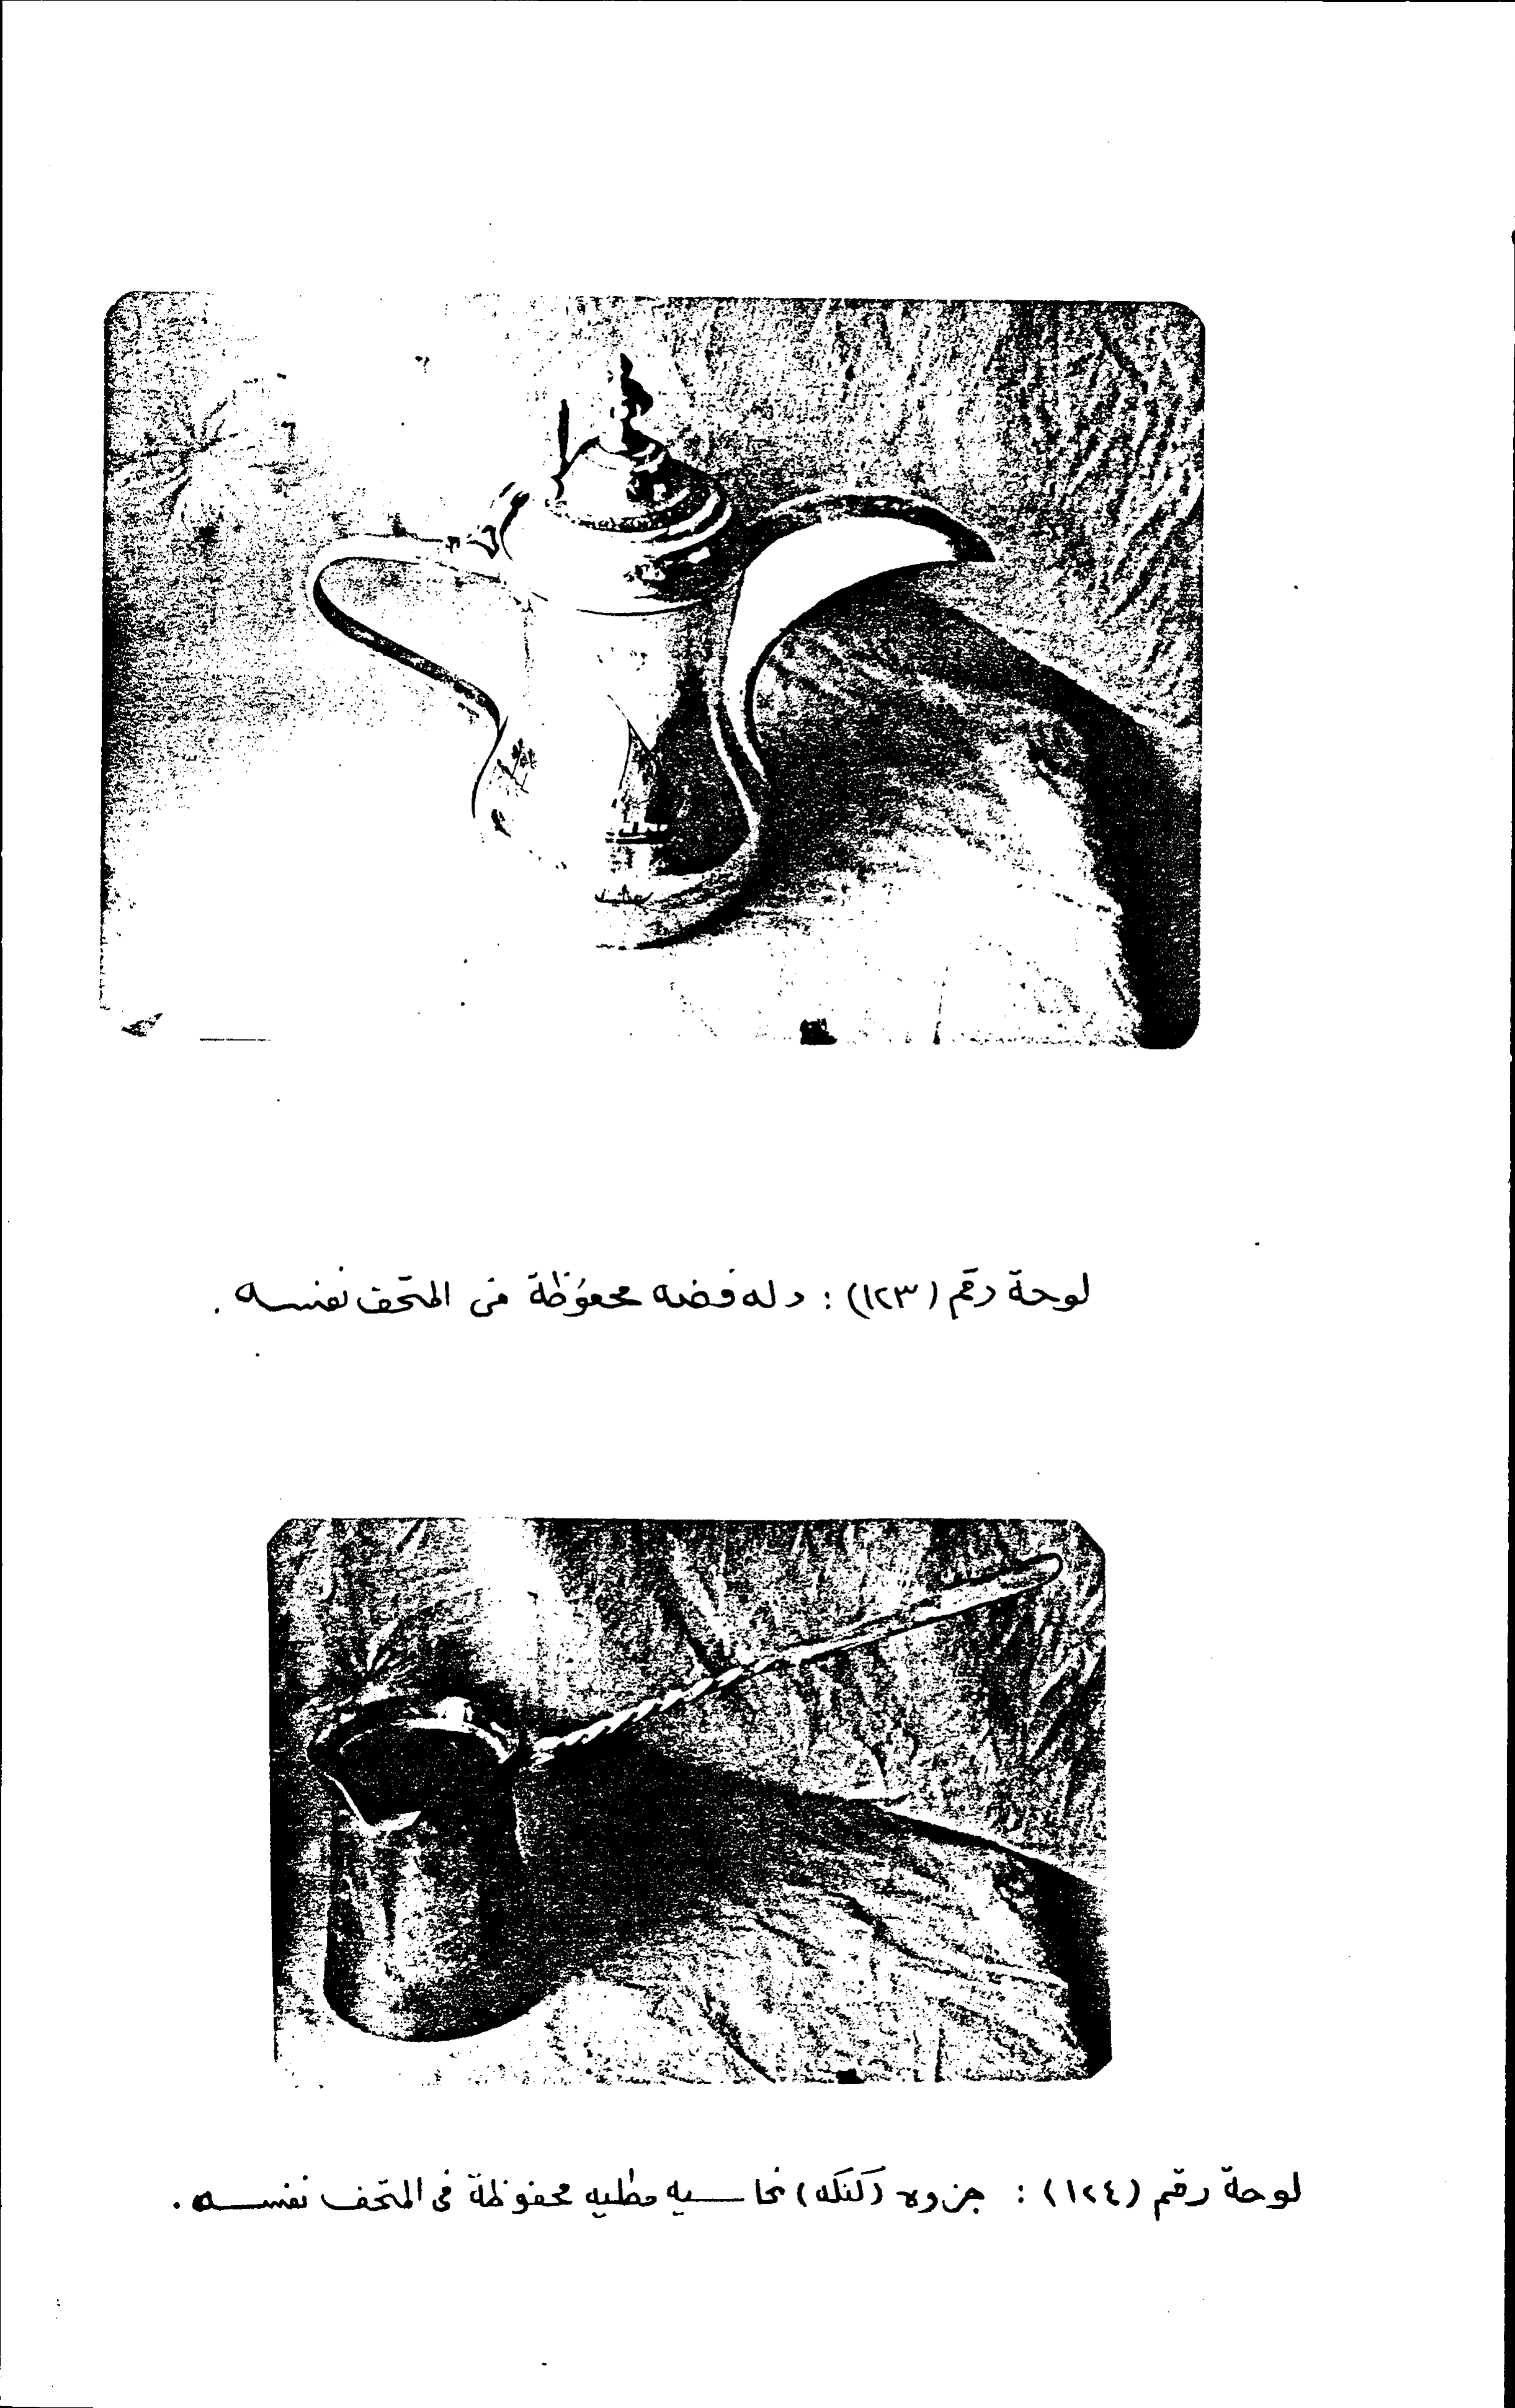 لوحة رقم (١٢٣) : دله فضه محفوظة فى المتحف نفسه .
لوحة رقم (١٢٤) : جزوه (كنكه) نحاسيه مطليه محفوظة فى المتحف نفسه .